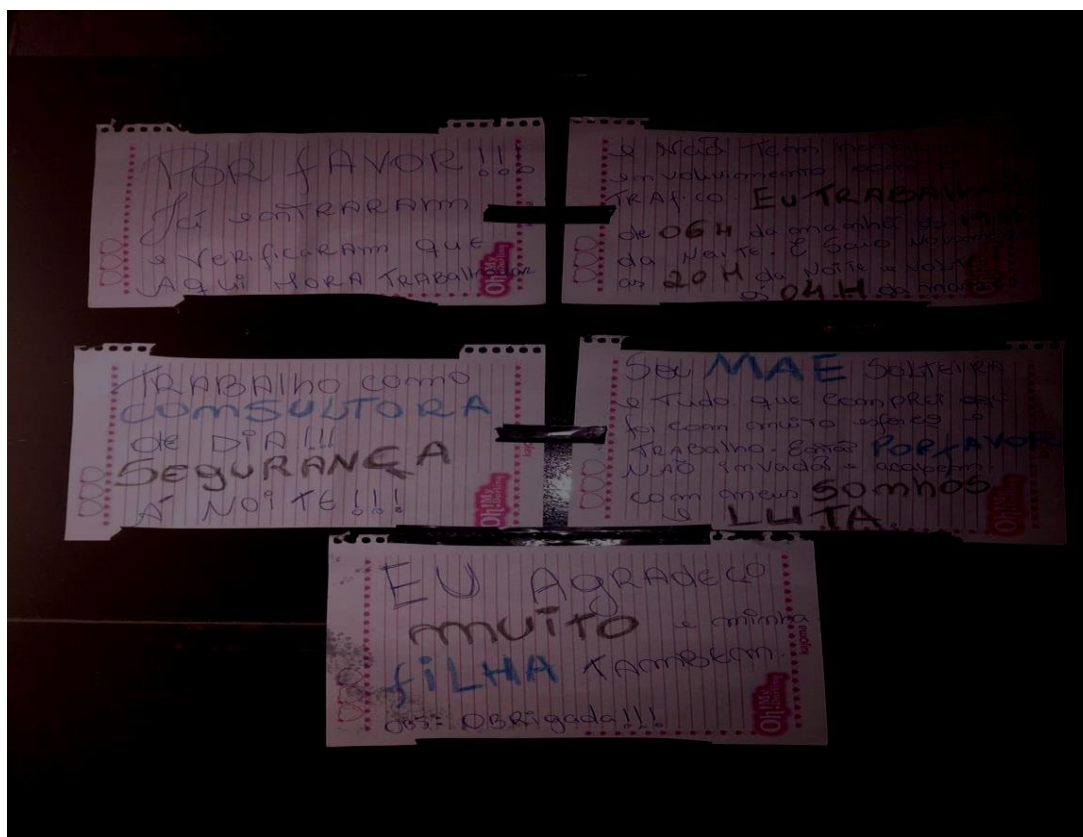 POR fAVOR!!!
Já entRARAm
e VeRificaRAm que
AQui mORA TRABAlhador
e Não Tem
envolvimento com
TRAfico. Eu TRABAlho
de 06H da manhã às 19H
da Noite. E Saio Novamente
as 20H da Noite e volto
às 04H da manhã
TRABAlho como
COMSULTORA
de DIA!!!
SeguRANÇA
Á NOiTe!!!
Sou MAE SOLTEIRA
e Tudo que comprei aqui
foi com muito esforço e
TRABAlho. Então POR fAVOR
NÃO invadam e acabem
com meus somhos
e LUTA.
EU AgRADeço
muiTo e minha
fiLHA TAmbém.
obs: OBRigada!!!
Oh! My Darling
Oh! My Darling
Oh! My Darling
Oh! My Darling
kajoma